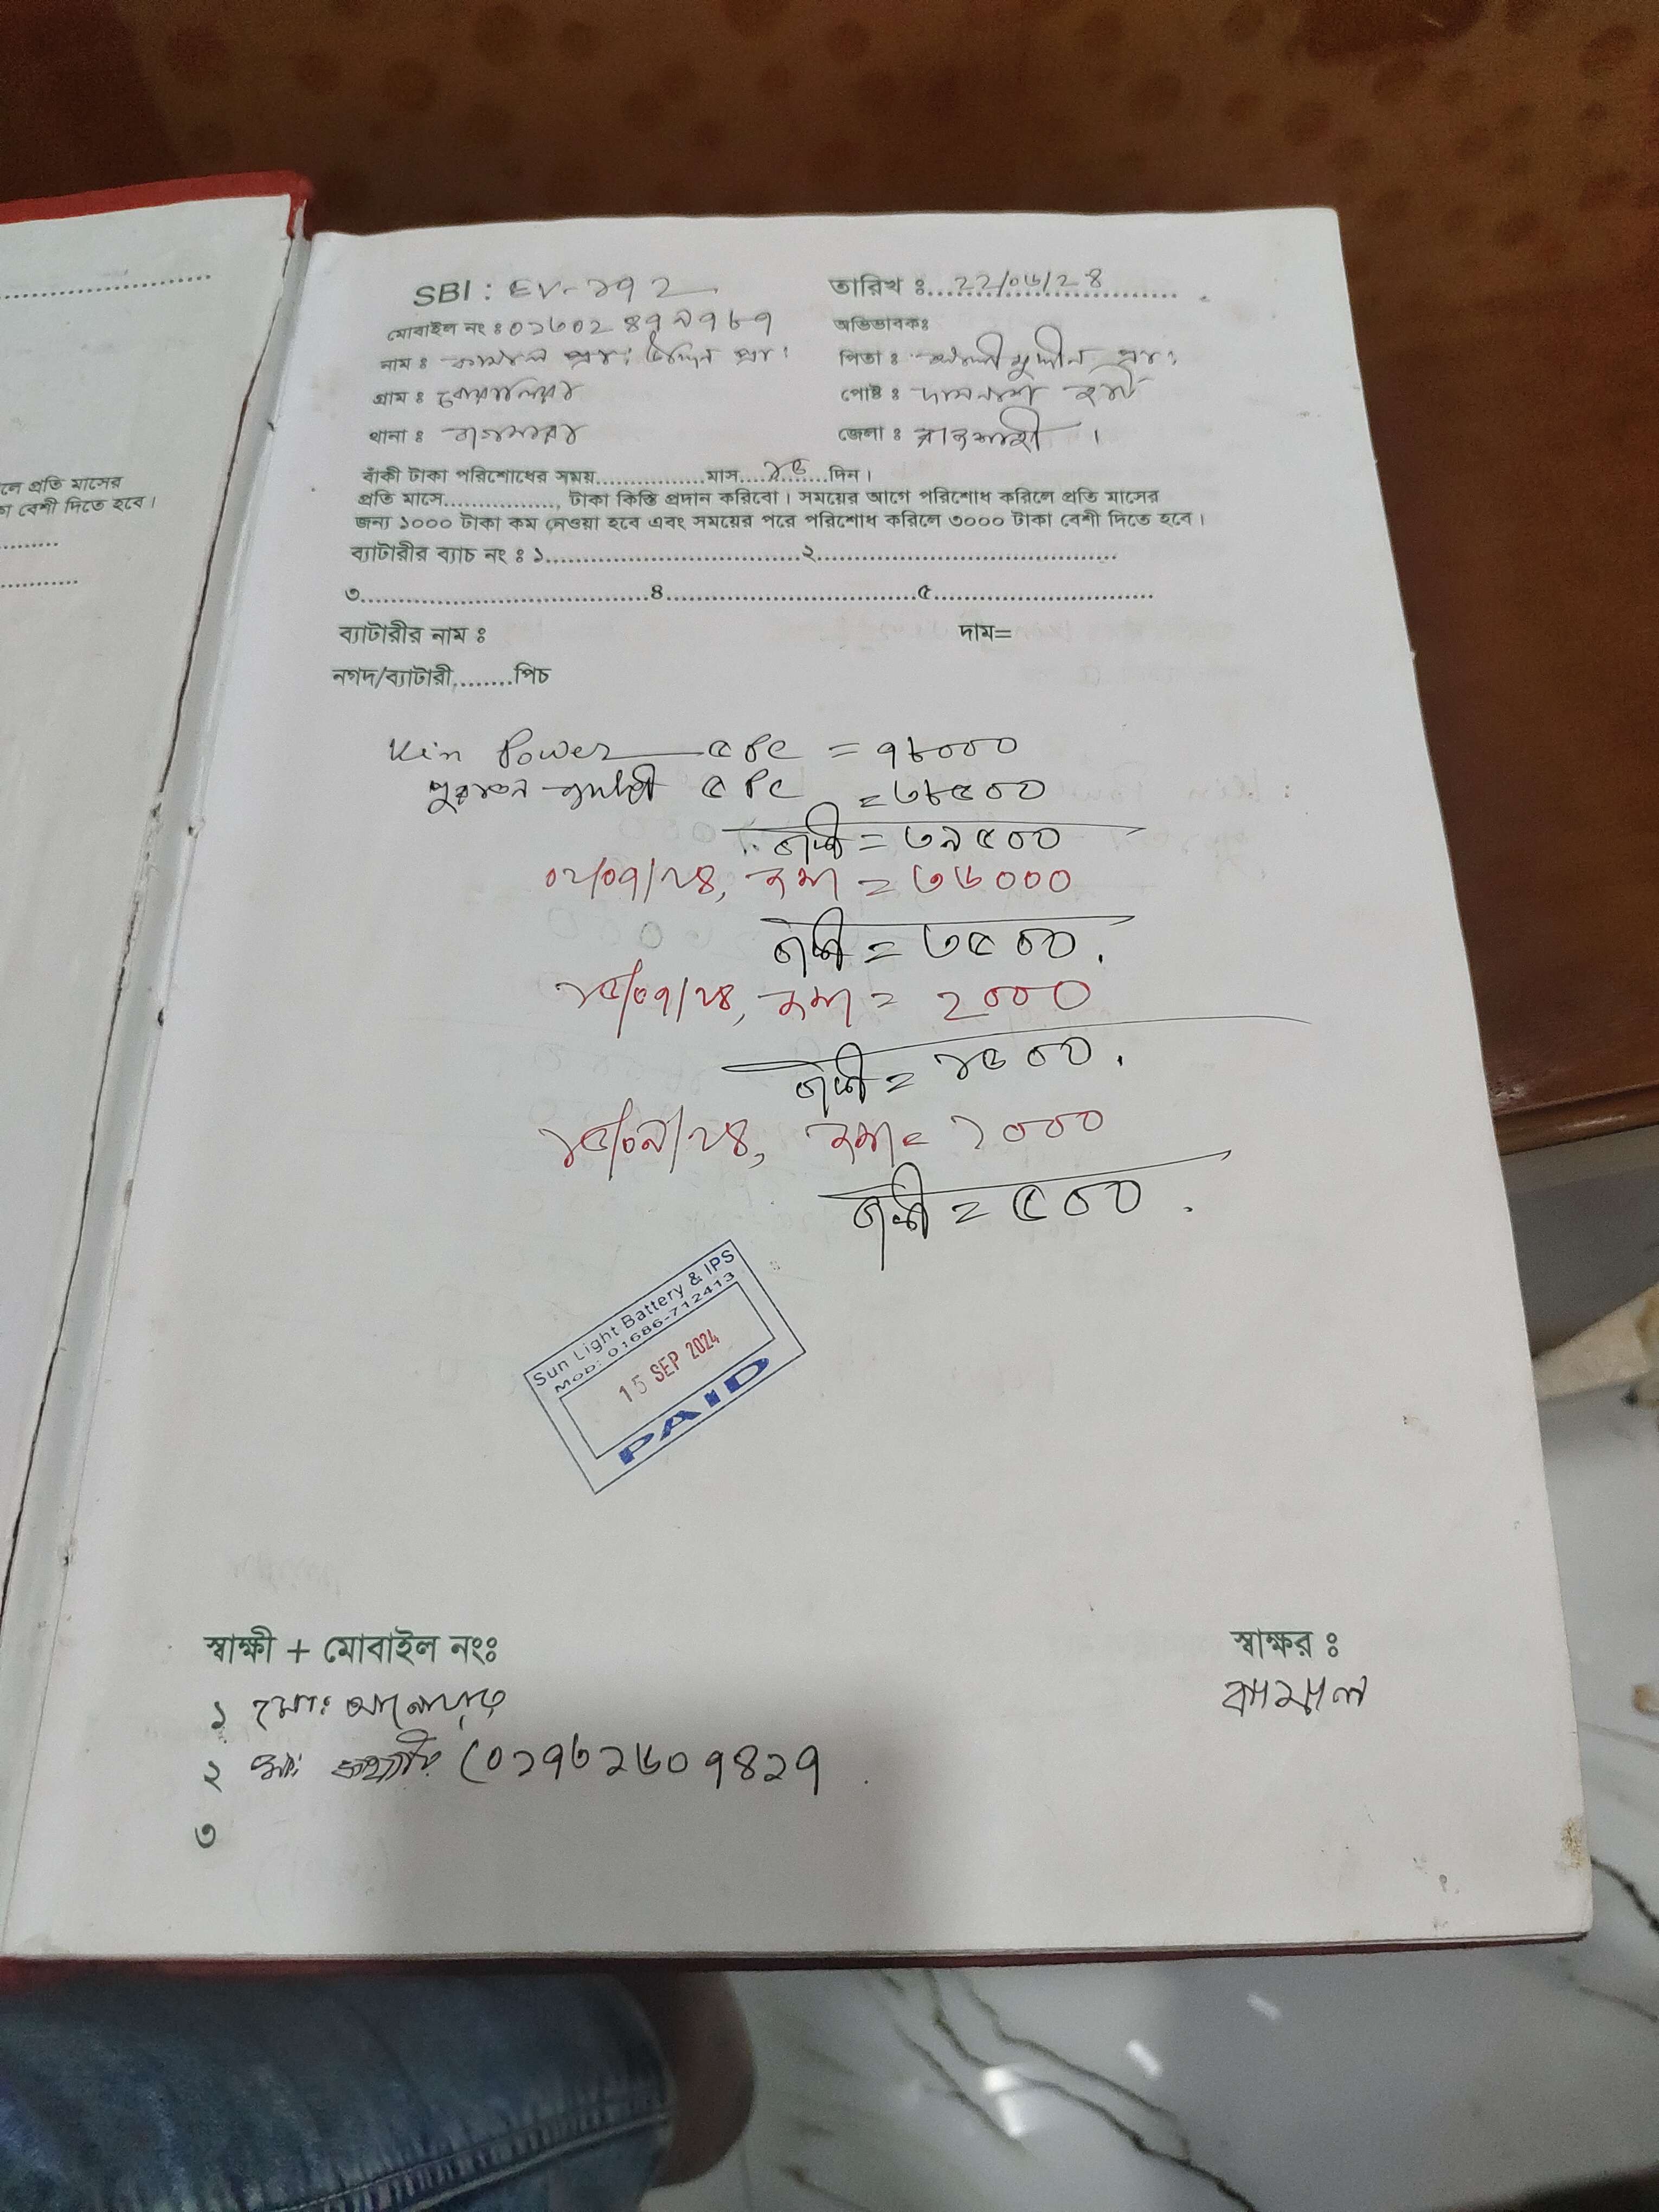 লে প্রতি মাসের
কা বেশী দিতে হবে।
SBI : EV-১৭২
তারিখ ঃ ২২/০৬/২৪
মোবাইল নং ঃ
অভিভাবকঃ
নাম ঃ কামাল প্রাঃ
পিতা ঃ
গ্রাম ঃ বোয়ালিয়া
পোষ্ট ঃ দামনাশ হাট
থানা ঃ বাগমারা
জেলা ঃ রাজশাহী ।
বাঁকী টাকা পরিশোধের সময়...............মাস....১৫.....দিন।
প্রতি মাসে..............., টাকা কিস্তি প্রদান করিবো। সময়ের আগে পরিশোধ করিলে প্রতি মাসের
জন্য ১০০০ টাকা কম নেওয়া হবে এবং সময়ের পরে পরিশোধ করিলে ৩০০০ টাকা বেশী দিতে হবে।
ব্যাটারীর ব্যাচ নং ঃ ১.................................২.......................................
৩......................................৪.................................৫...............................
ব্যাটারীর নাম ঃ দাম=
নগদ/ব্যাটারী........পিচ
Power ৫ PC = ৭৮০০০
পুরাতন ব্যাটারী ৫ PC = ৩৮৫০০
বাকী = ৩৯৫০০
০২/০৭/২৪, জমা = ৩৬০০০
বাকী = ৩৫০০.
১৫/০৭/২৪, জমা = ২০০০
বাকী = ১৫০০.
১৫/০৯/২৪, জমা = ১০০০
বাকী = ৫০০.
Sun Light Battery & IPS
Mob: 01686-712413
15 SEP 2024
PAID
স্বাক্ষী + মোবাইল নংঃ
স্বাক্ষর ঃ
১ মোঃ
কামাল
২ মোঃ
৩